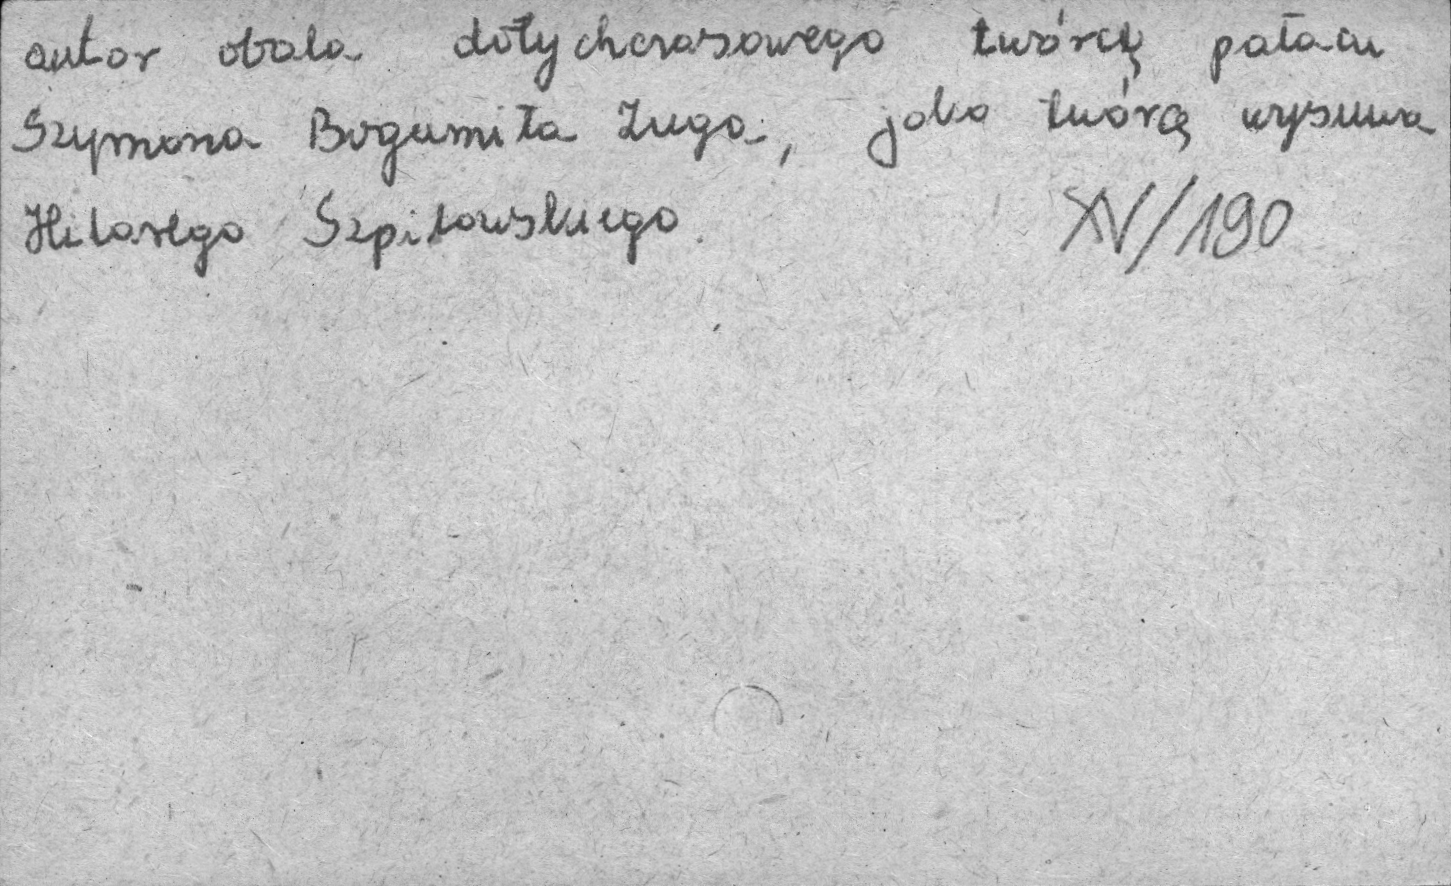 autor obala dotychczasowego twórcę pałacu
Szymona Bogumiła Zuga, jako twórcę wysuwa
Hilarego Szpilowskiego. XV/190